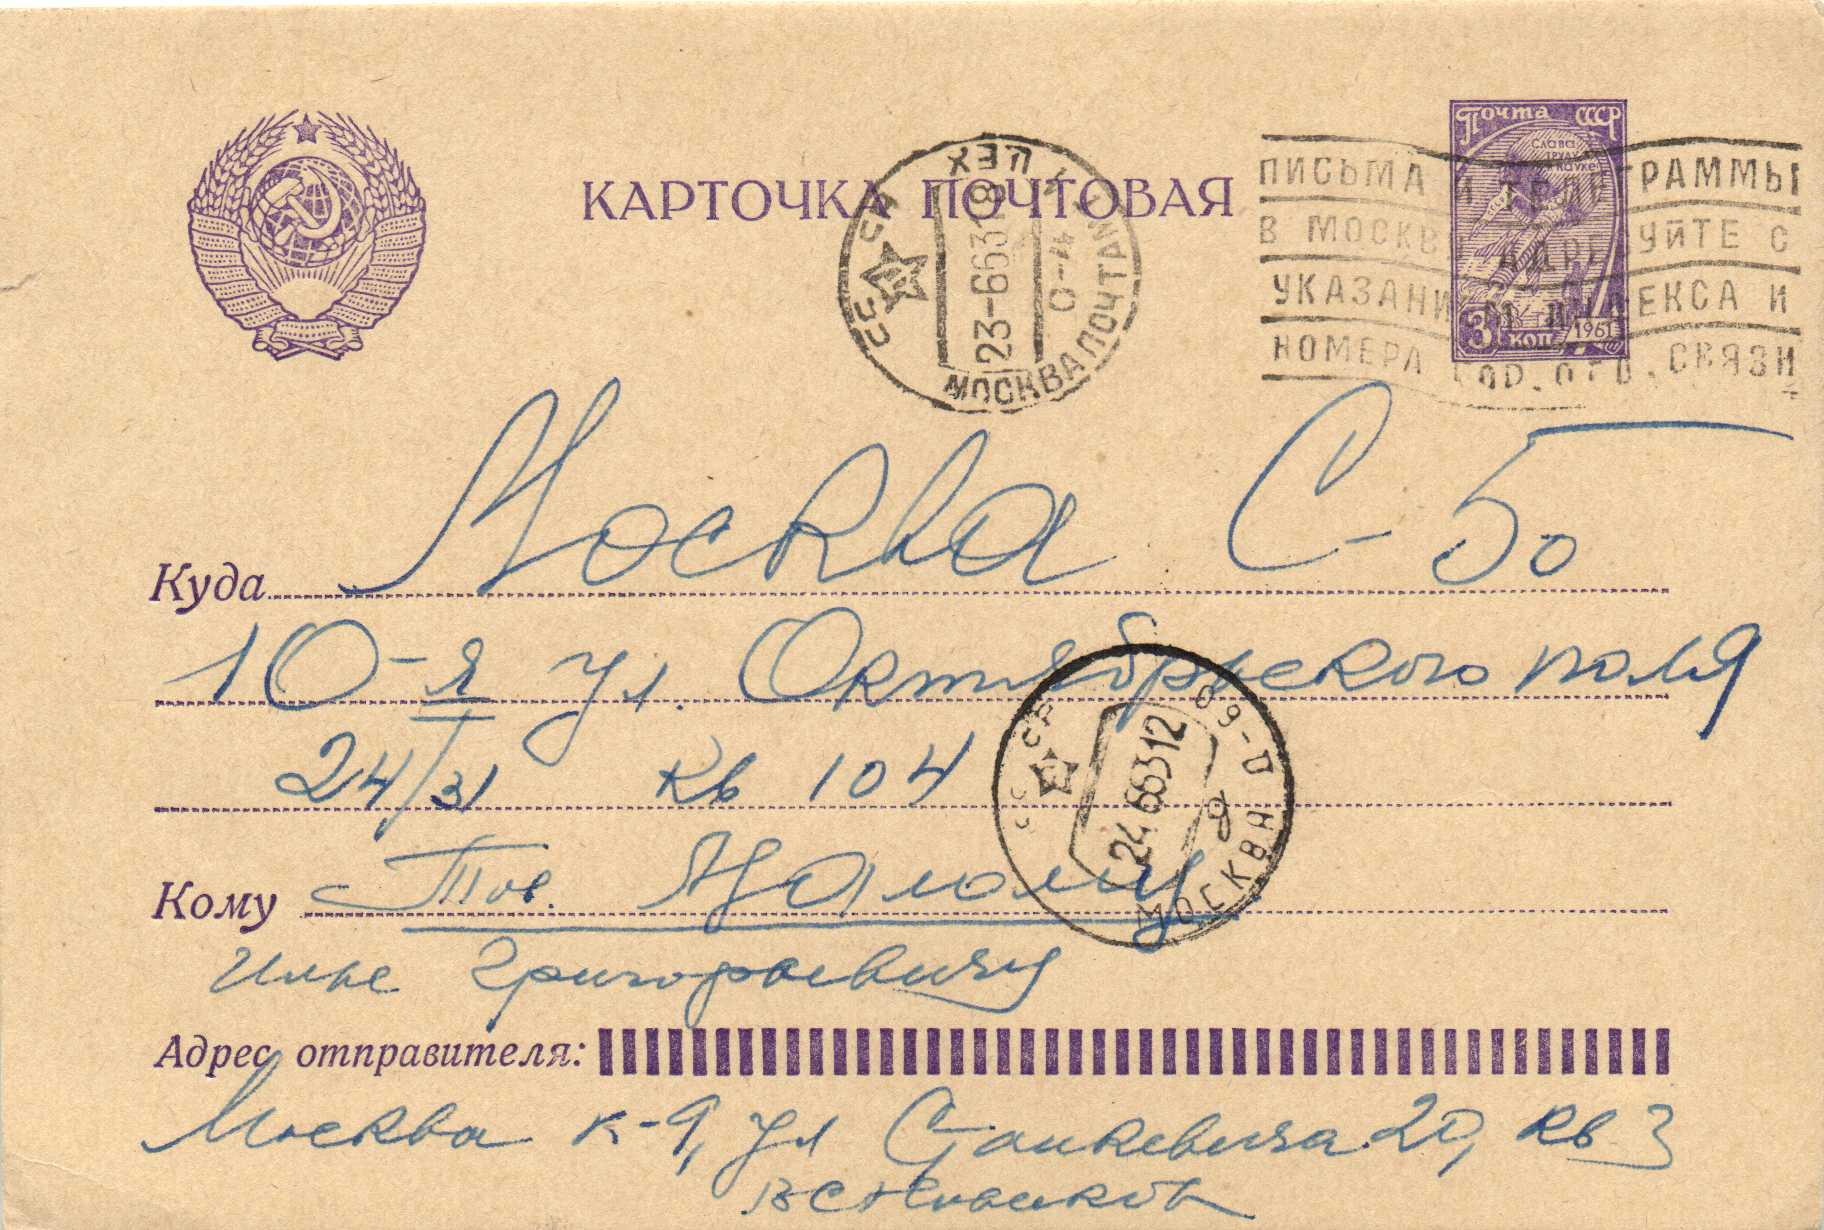 КАРТОЧКА ПОЧТОВАЯ
Почта СССР
СЛАВА ТРУДУ НАУКЕ
3 КОП
1961
СССР МОСКВА ПОЧТАМТ ЦЕХ
23-6 63 18
0-4
ПИСЬМА И ТЕЛЕГРАММЫ
В МОСКВУ АДРЕСУЙТЕ С
УКАЗАНИЕМ ИНДЕКСА И
НОМЕРА ГОР. ОТД. СВЯЗИ
Куда Москва С-50
10-я ул. Октябрьского поля
24/31 кв 104
СССР МОСКВА Д-60
24 6 63 12
Кому Тов.
Илье Григорьевичу
Адрес отправителя:
Москва К-9, ул Станкевича 20, кв 3